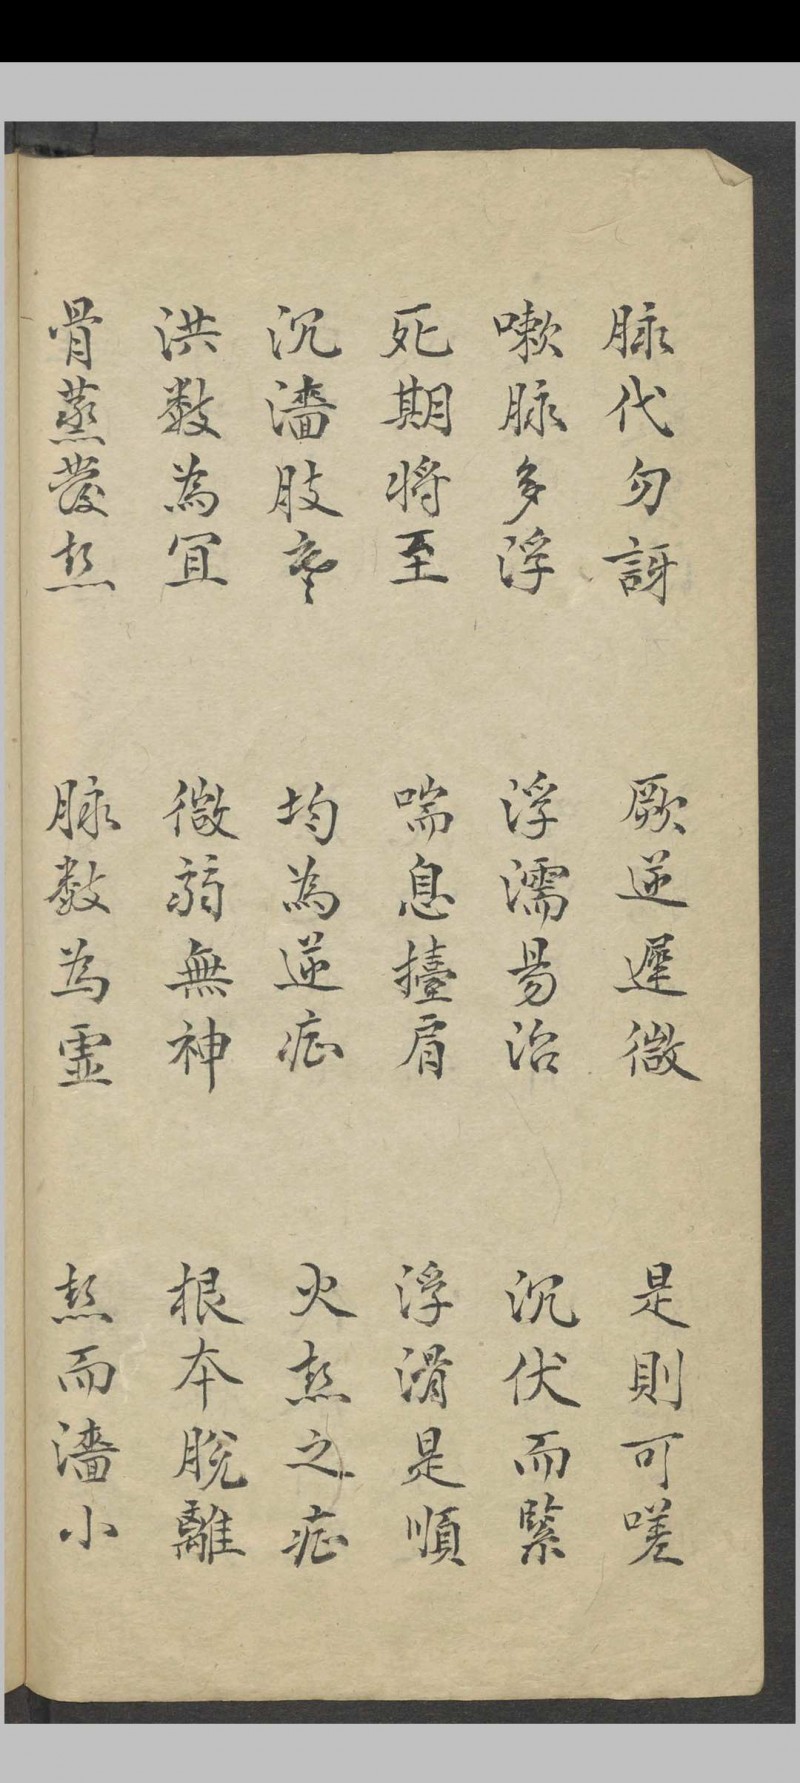 脉代勿訝 厥逆遲微 是則可嗟
嗽脉多浮 浮濡易治 沉伏而緊
死期将至 喘息擡肩 浮滑是順
沉濇肢寒 均為逆症 火𤍠之症
洪数為宜 微弱無神 根本脫離
骨蒸發𤍠 脉数為虛 𤍠而濇小